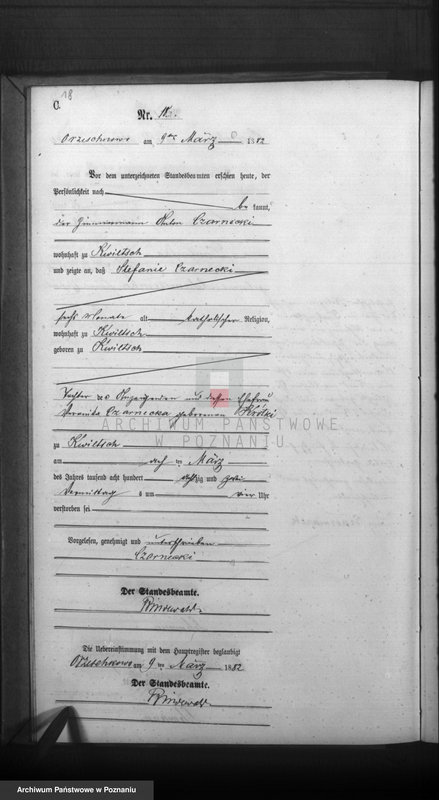 18
C.
Nr. 18.
Orzeschkowo am 9ten März 1882
Vor dem unterzeichneten Standesbeamten erschien heute, der
Persönlichkeit nach
be kannt,
der Zimmermann Anton Czarnecki
wohnhaft zu Kwiltsch
und zeigte an, daß Stefanie Czarnecki
sechs Monate alt katholischer Religion,
wohnhaft zu Kwiltsch
geboren zu Kwiltsch
Tochter des Anzeigenden und dessen Ehefrau
Czarnecka geborenen
ARCHIWUM PAŃSTWOWE
W POZNANIU
zu Kwiltsch
am ten März
des Jahres tausend acht hundert achtzig und zwei
Vormittag s um vier Uhr
verstorben sei
Vorgelesen, genehmigt und unterschrieben
Czarnecki
Der Standesbeamte.
Die Uebereinstimmung mit dem Hauptregister beglaubigt
Orzeschkowo am 9 ten März 1882
Der Standesbeamte.
Archiwum Państwowe w Poznaniu